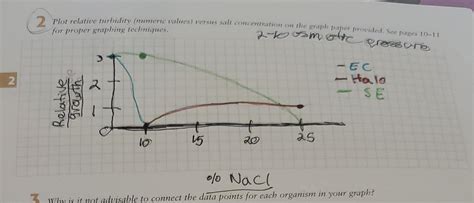 2 Plot relative turbidity (numeric values) versus salt concentration on the graph paper provided. See pages 10–11
for proper graphing techniques.
2-10 osmotic pressure
2
Relative growth
3
2
1
0
10
15
20
25
- EC
- Halo
- SE
% NaCl
3 Why is it not advisable to connect the data points for each organism in your graph?